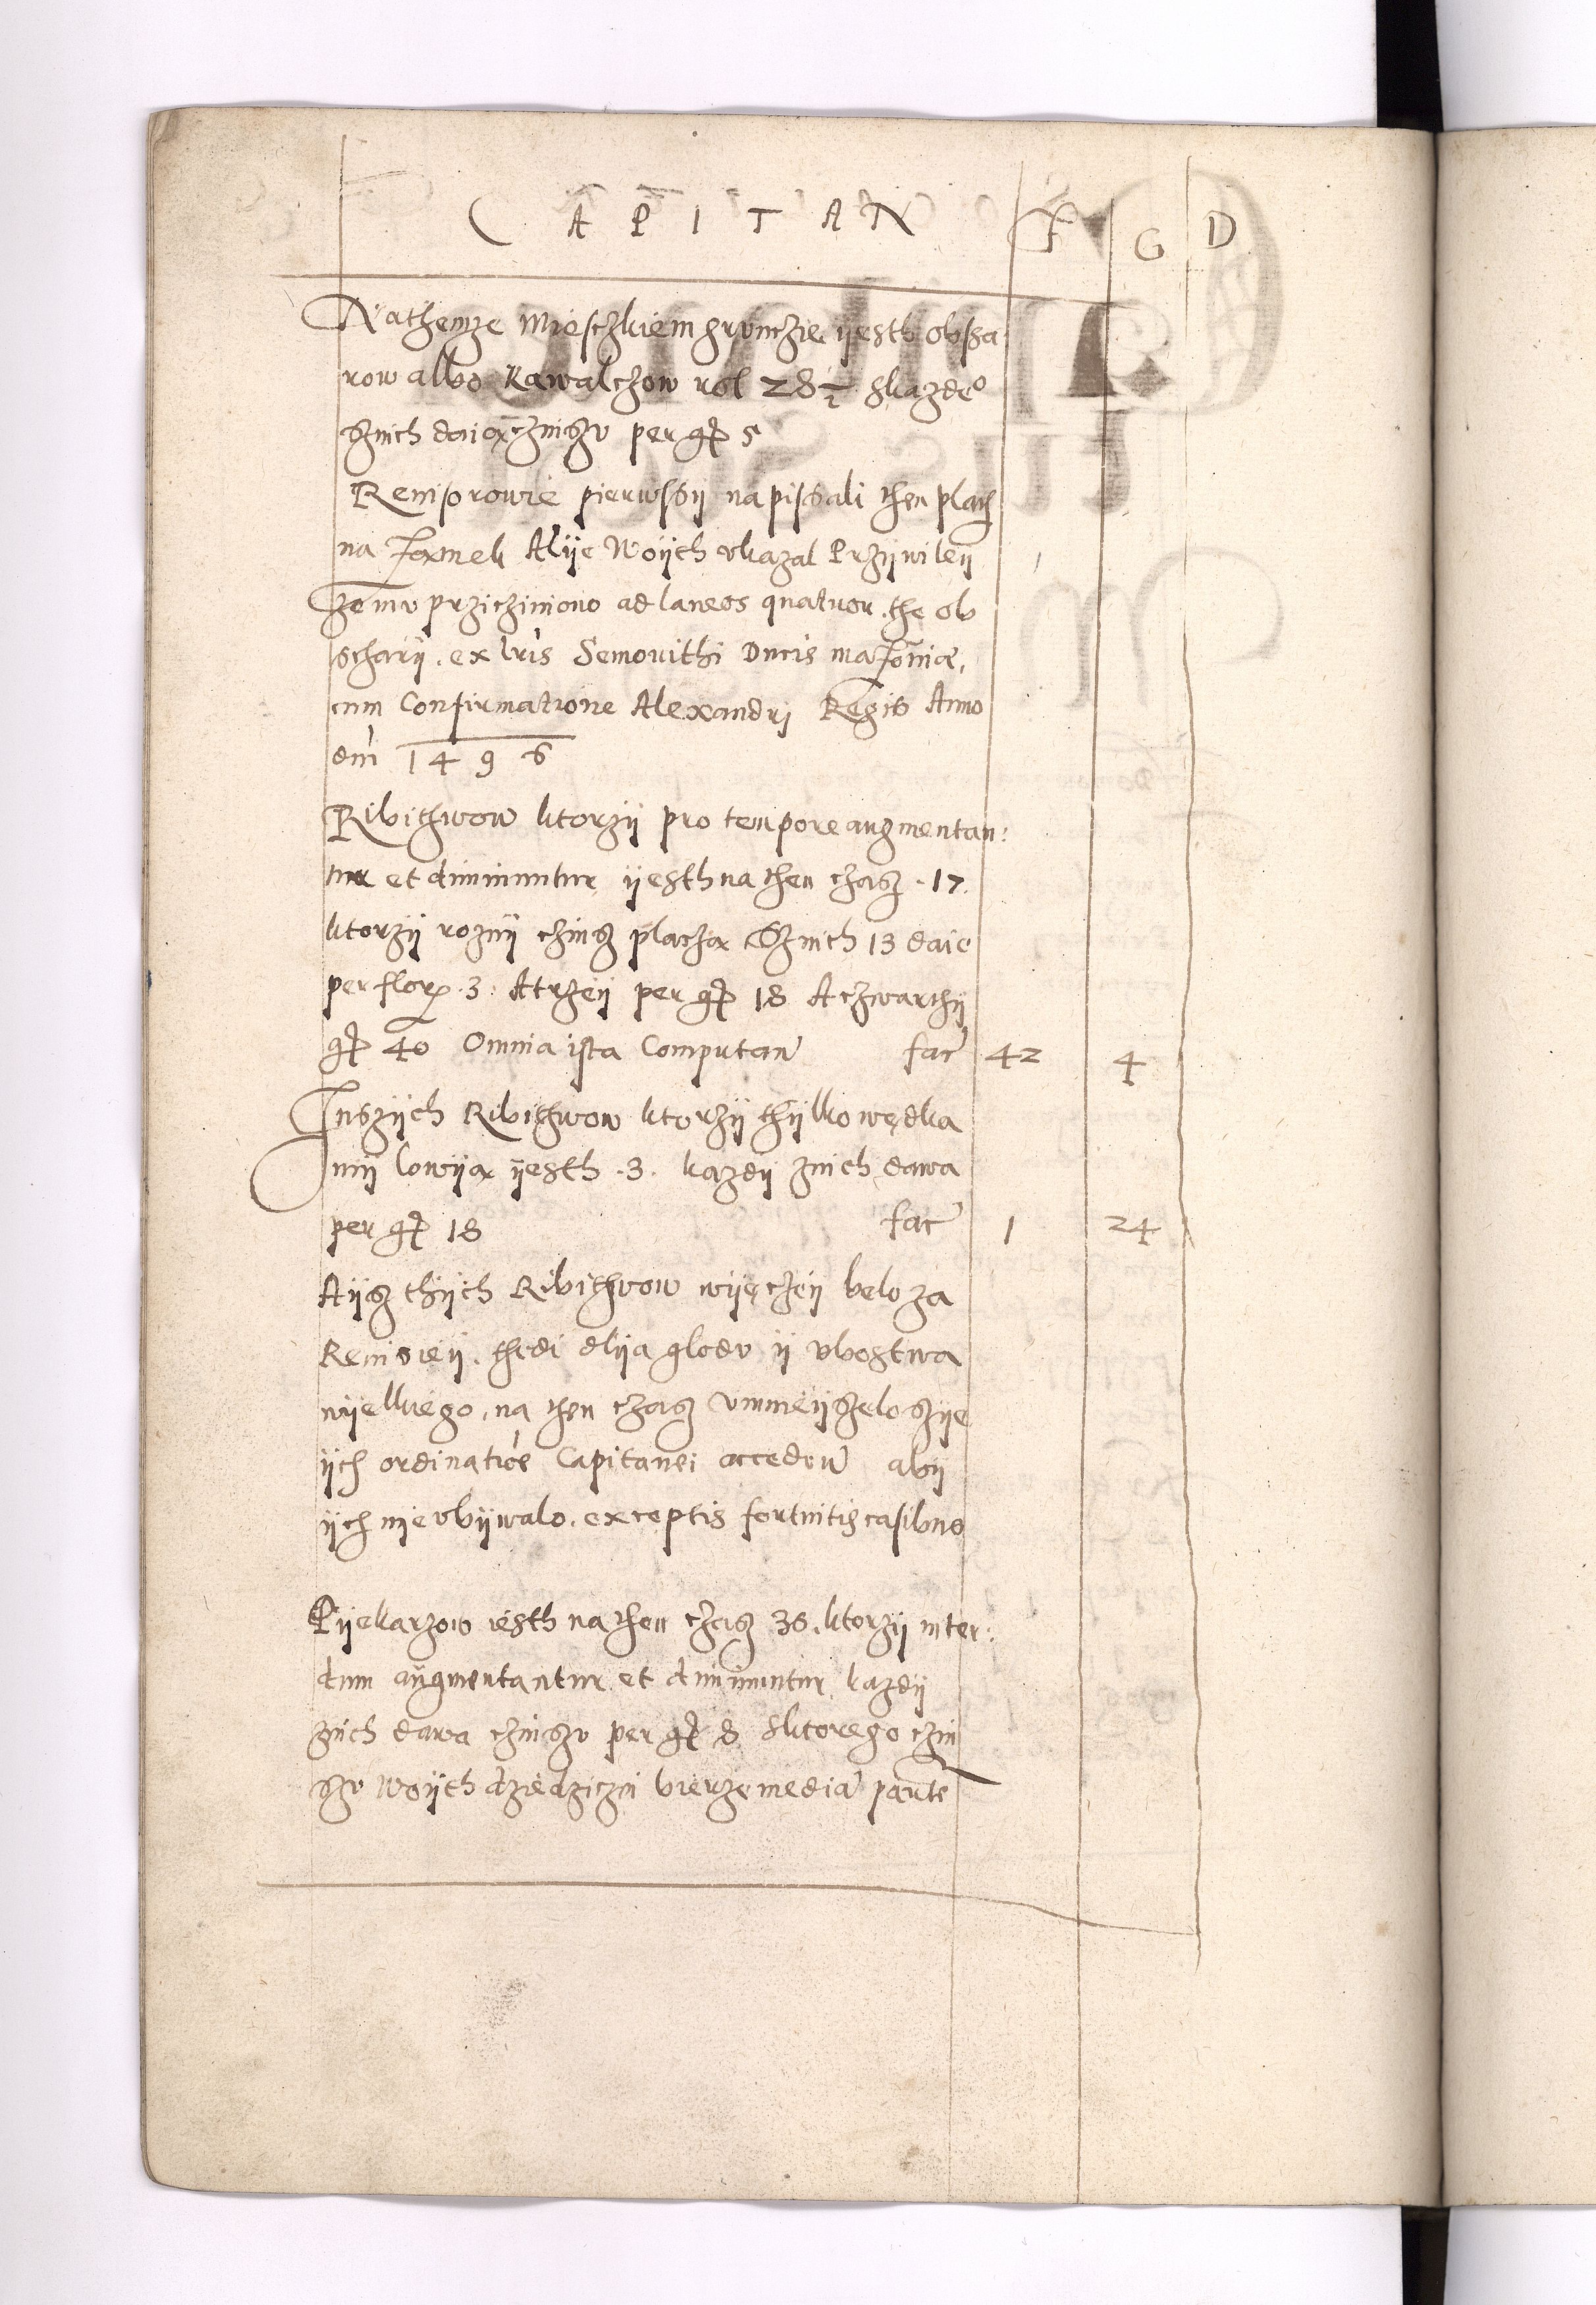 CAPITAN F G D
Nathemze Mieschkiem grunczie yesth obsza
row albo Kawalchow rol 28½ skazde°
sznich daia czinszu per gr 5
Rewisorowie pierwssy napissali then placz
na Jarmek Alye Woyth ukazal Przywiley
ze mu przicziniono ad laneos quatuor. the ob
schary. ex lris Semouithi Ducis masouiæ,
cum Confirmatione Alexandrj Regis Anno
dni 1496
Ribithwow ktorzy pro tempore augmentan:
tur et diminuntur yesth na then chasz .17.
ktorzy rozny chinsz placza Sznich 13 daie
per flor. 3. A trzey per gr 18 A czwarthy
gr 40 Omnia ista Computan fac 42 4
Inszych Ribithwow ktorzy thylko wędka
my lowya yesth .3. kazdy znich dawa
per gr 18 fac 1 24
Aysz thych Ribithwow wyęczey belo za
Rewisiey. thedi dlya glodu y ubostwa
wyelkiego, na then chasz vmnieyszelo szye
ych ordinatioe Capitanei accedem aby
ych nie vbywalo. exceptis fortuitis casibus
Pyekarzow iesth na then chasz 36. ktorzy inter:
dum augmentantur et diminuntur kazdy
znich dawa chinszu per gr 8 Sktorego czin
szu Woyth dziedziczni bierze media parte